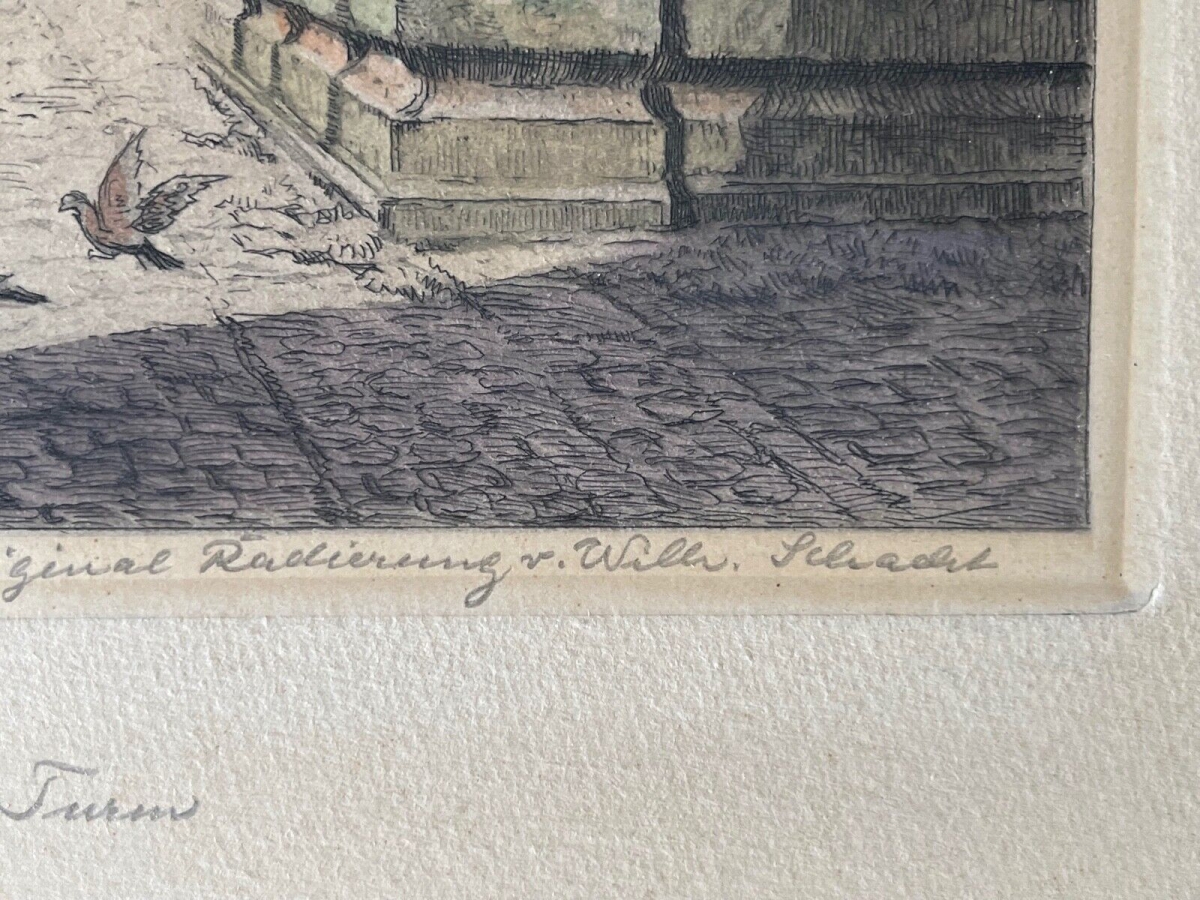 iginal Radierung v. Willi. Schacht
Turm